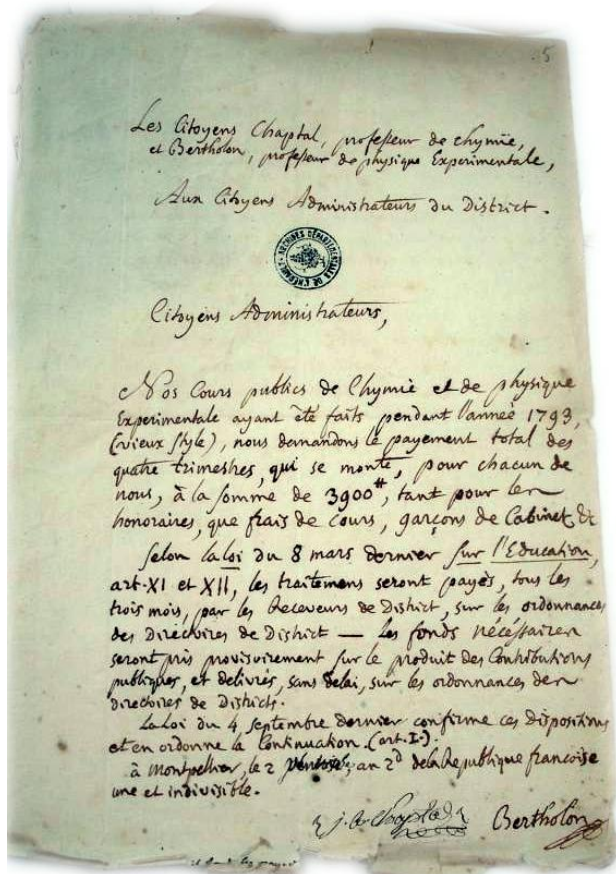 5
Les Citoyens Chaptal, professeur de chymie,
et Bertholon, professeur de physique Experimentale,
Aux Citoyens Administrateurs du District.
ARCHIVES DÉPARTEMENTALES DE L'HÉRAULT
Citoyens Administrateurs,
Nos Cours publics de Chymie et de physique
Experimentale ayant été faits pendant l'année 1793,
(vieux style), nous demandons le payement total des
quatre trimestres, qui se monte, pour chacun de
nous, à la somme de 3900#, tant pour les
honoraires, que frais de cours, garçons de Cabinet, &c
Selon la loi du 8 mars dernier sur l'Education,
art. XI et XII, les traitemens seront payés, tous les
trois mois, par les Receveurs de District, sur les ordonnances
des Directoires de District — Les fonds nécéssaires
seront pris provisoirement sur le produit des Contributions
publiques, et delivrés, sans delai, sur les ordonnances des
Directoires de Districts.
La Loi du 4 septembre dernier confirme ces dispositions
et en ordonne la Continuation. (art. I.).
à Montpellier, le 2 an 2d de la Republique francoise
une et indivisible.
j. a. Chaptal Bertholon